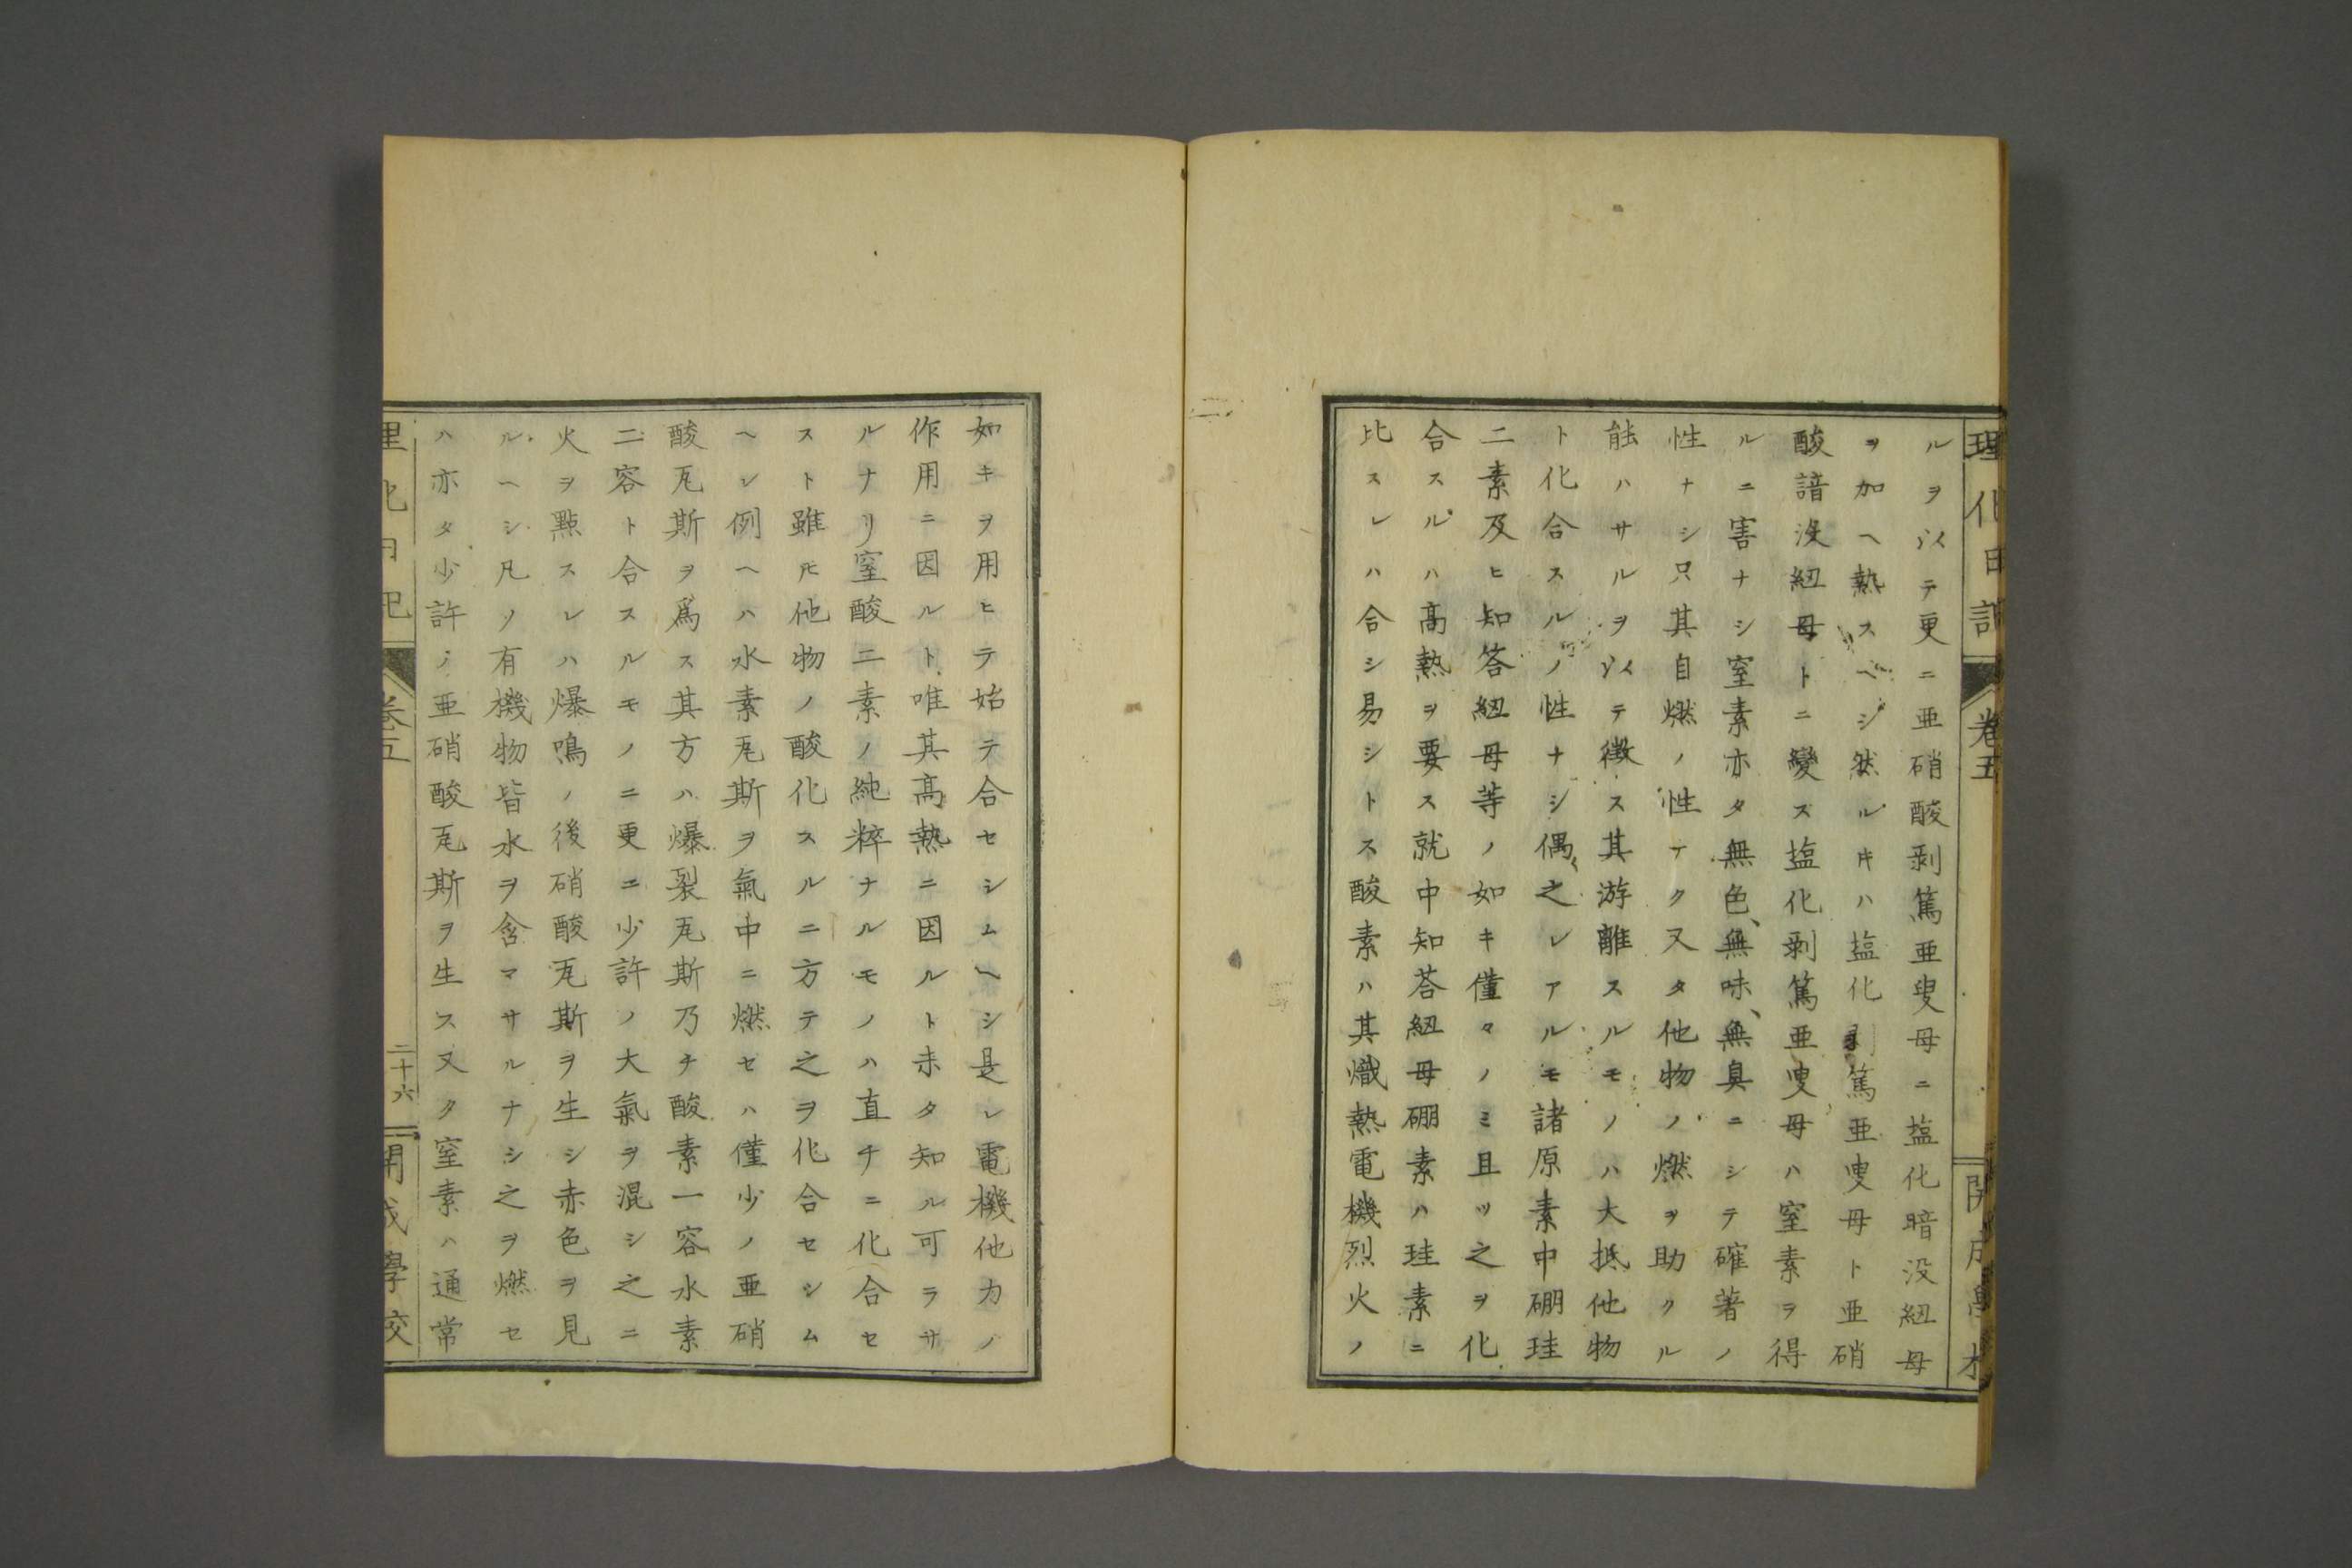 理化日記 卷五 開成學校
ルヲ以テ更ニ亜硝酸剥篤亜叟母ニ塩化暗没紐母
ヲ加ヘ熱スヘシ然ルキハ塩化剥篤亜叟母ト亜硝
酸諳没紐母トニ變ス塩化剥篤亜叟母ハ窒素ヲ得
ルニ害ナシ窒素亦タ無色、無味、無臭ニシテ確著ノ
性ナシ只其自燃ノ性ナク又タ他物ノ燃ヲ助クル
能ハサルヲ以テ徴ス其游離スルモノハ大抵他物
ト化合スルノ性ナシ偶之レアルモ諸原素中硼珪
二素及ヒ知答紐母等ノ如キ僅々ノミ且ツ之ヲ化
合スルハ髙熱ヲ要ス就中知荅紐母硼素ハ珪素ニ
比スレハ合シ易シトス酸素ハ其熾熱電機烈火ノ
如キヲ用ヒテ始テ合セシムヘシ是レ電機他力ノ
作用ニ因ルト唯其髙熱ニ因ルト未タ知ル可ラサ
ルナリ窒酸二素ノ純粹ナルモノハ直チニ化合セ
スト雖𪜈他物ノ酸化スルニ方テ之ヲ化合セシム
ヘシ例ヘハ水素瓦斯ヲ氣中ニ燃セハ僅少ノ亜硝
酸瓦斯ヲ爲ス其方ハ爆裂瓦斯乃チ酸素一容水素
二容ト合スルモノニ更ニ少許ノ大氣ヲ混シ之ニ
火ヲ點スレハ爆鳴ノ後硝酸瓦斯ヲ生シ赤色ヲ見
ルヘシ凡ソ有機物皆水ヲ含マサルナシ之ヲ燃セ
ハ亦タ少許ノ亜硝酸瓦斯ヲ生ス又ク窒素ハ通常
理化日記 卷五 二十六 開成學校